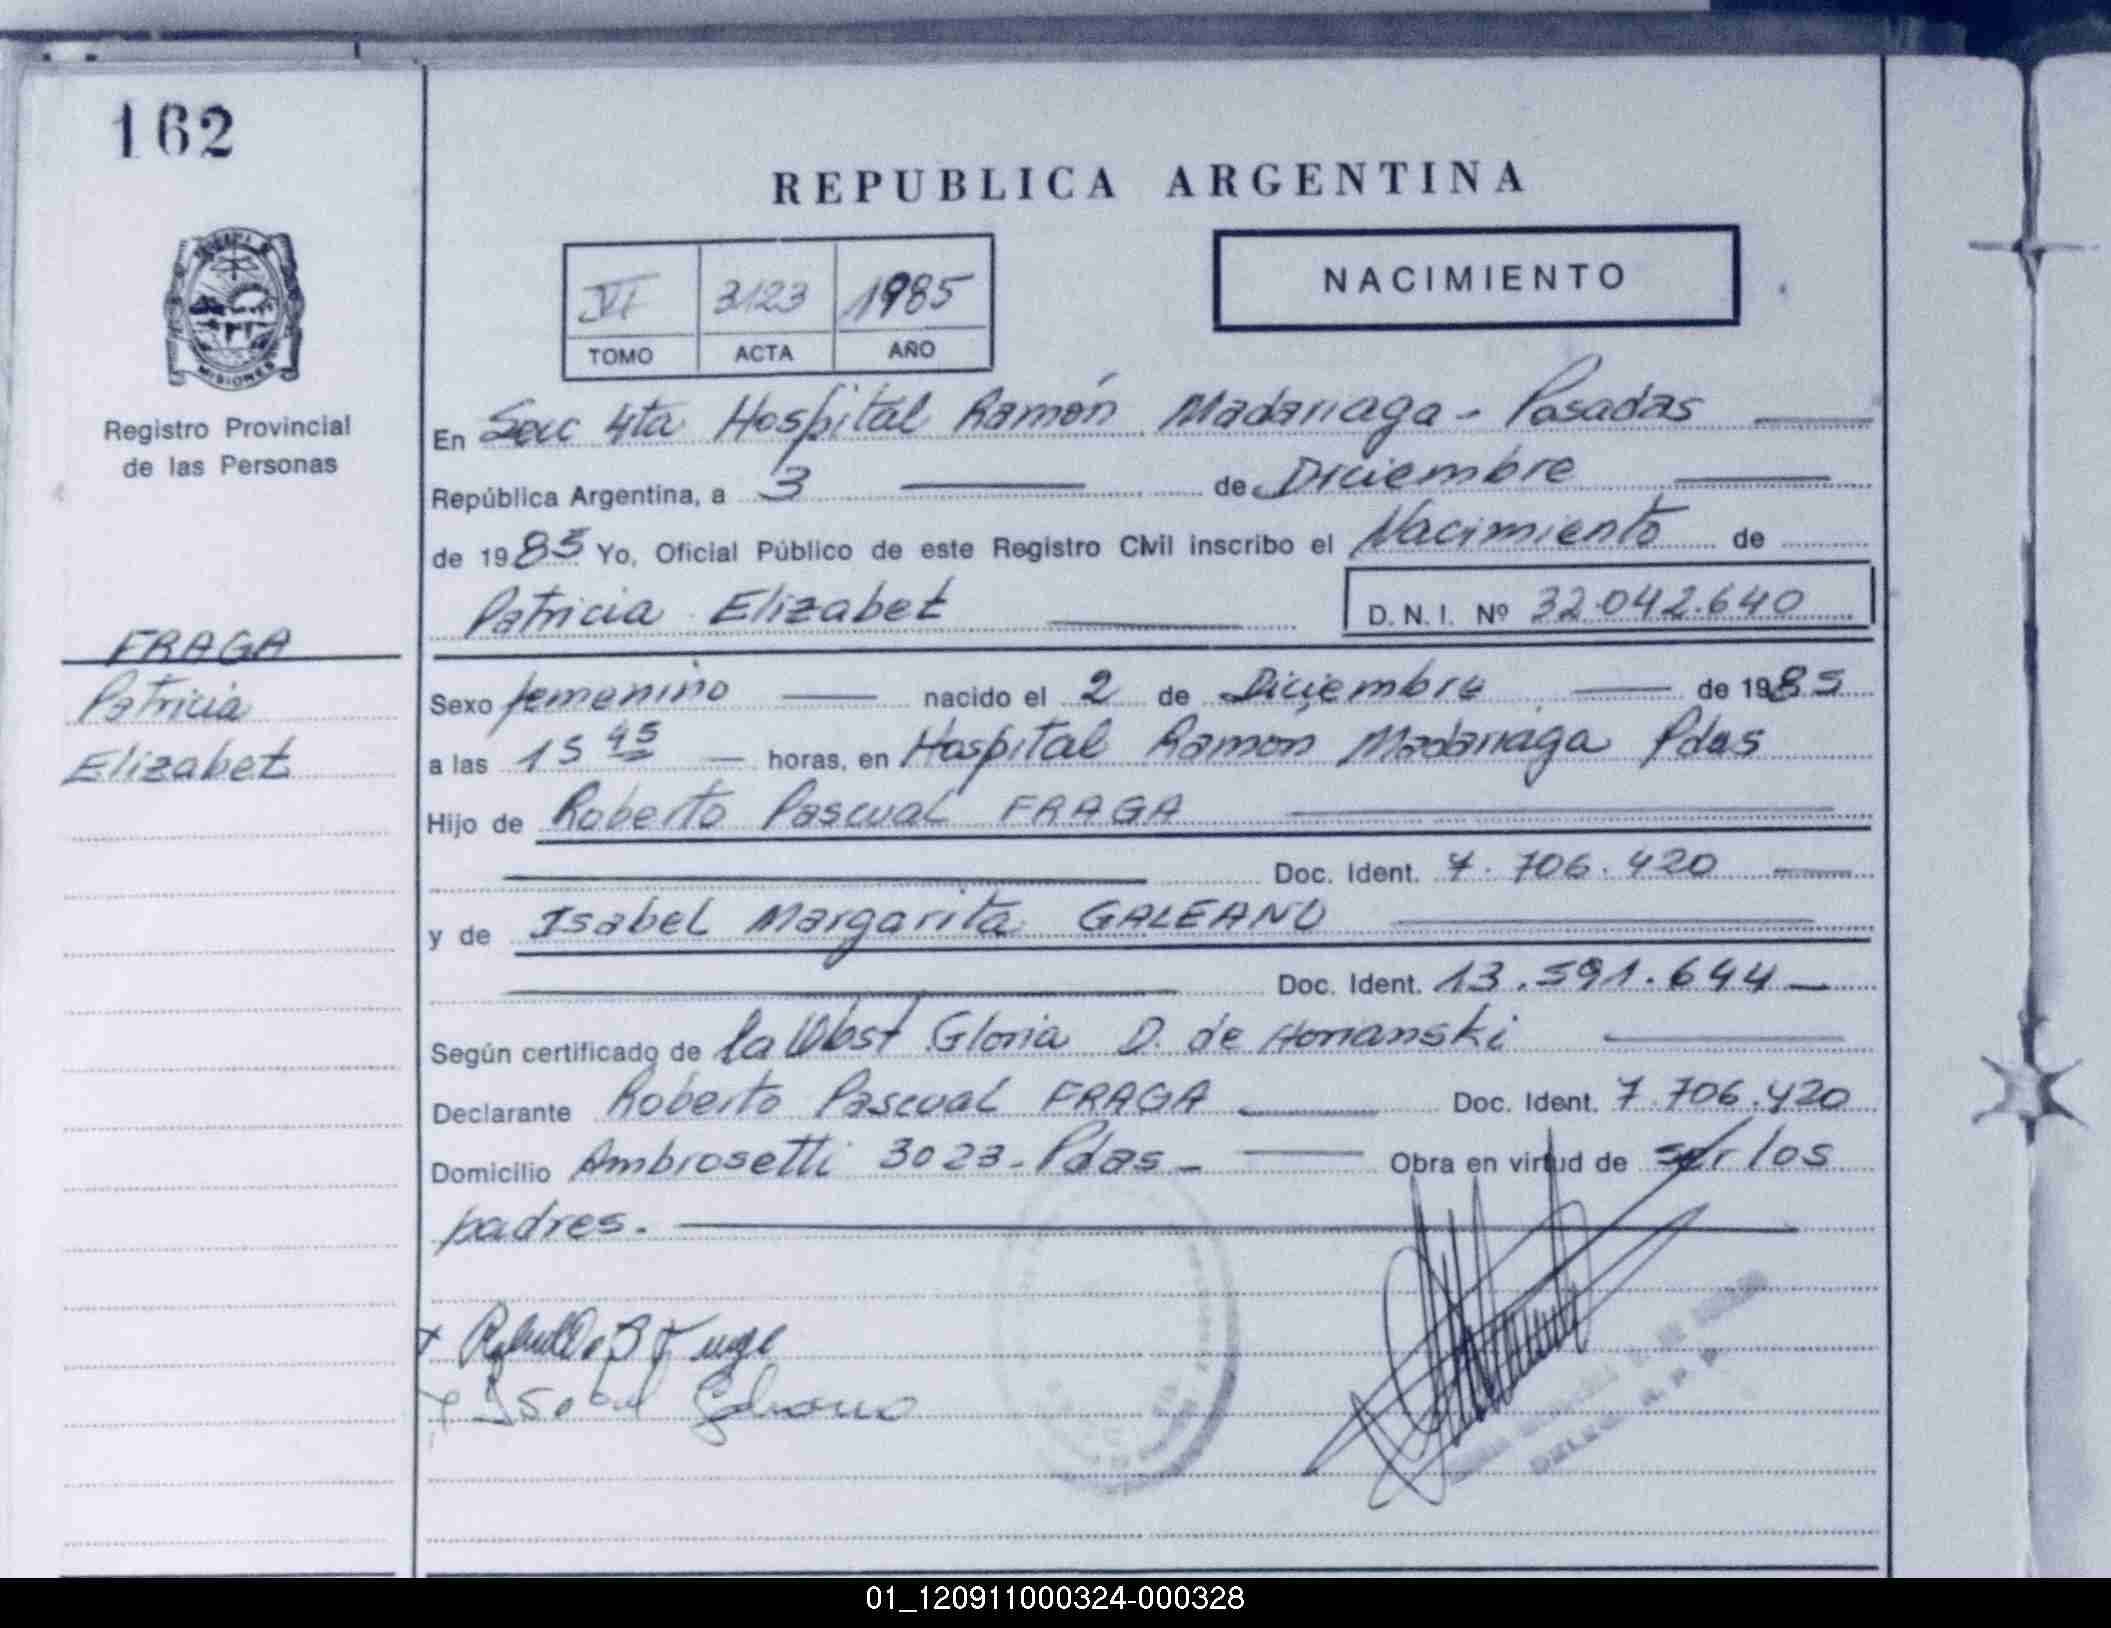 162
REPUBLICA ARGENTINA
NACIMIENTO
VI 3123 1985
TOMO ACTA AÑO
MISIONES
Registro Provincial
de las Personas
En Secc 4ta Hospital Ramón Madariaga - Posadas
República Argentina, a 3 de Diciembre
de 1985 Yo, Oficial Público de este Registro Civil inscribo el Nacimiento de
Patricia Elizabet D.N.I. Nº 32.042.640
FRAGA
Patricia
Elizabet
Sexo femenino nacido el 2 de Diciembre de 1985
a las 15 45 horas, en Hospital Ramon Madariaga Pdas
Hijo de Roberto Pascual FRAGA
Doc. Ident. 7.706.420
y de Isabel Margarita GALEANO
Doc. Ident. 13.591.644
Según certificado de la Obst Gloria D. de
Declarante Roberto Pascual FRAGA Doc. Ident. 7.706.420
Domicilio Ambrosetti 3023 - Pdas - Obra en virtud de ser los
padres.
Isabel Galeano
01_120911000324-000328